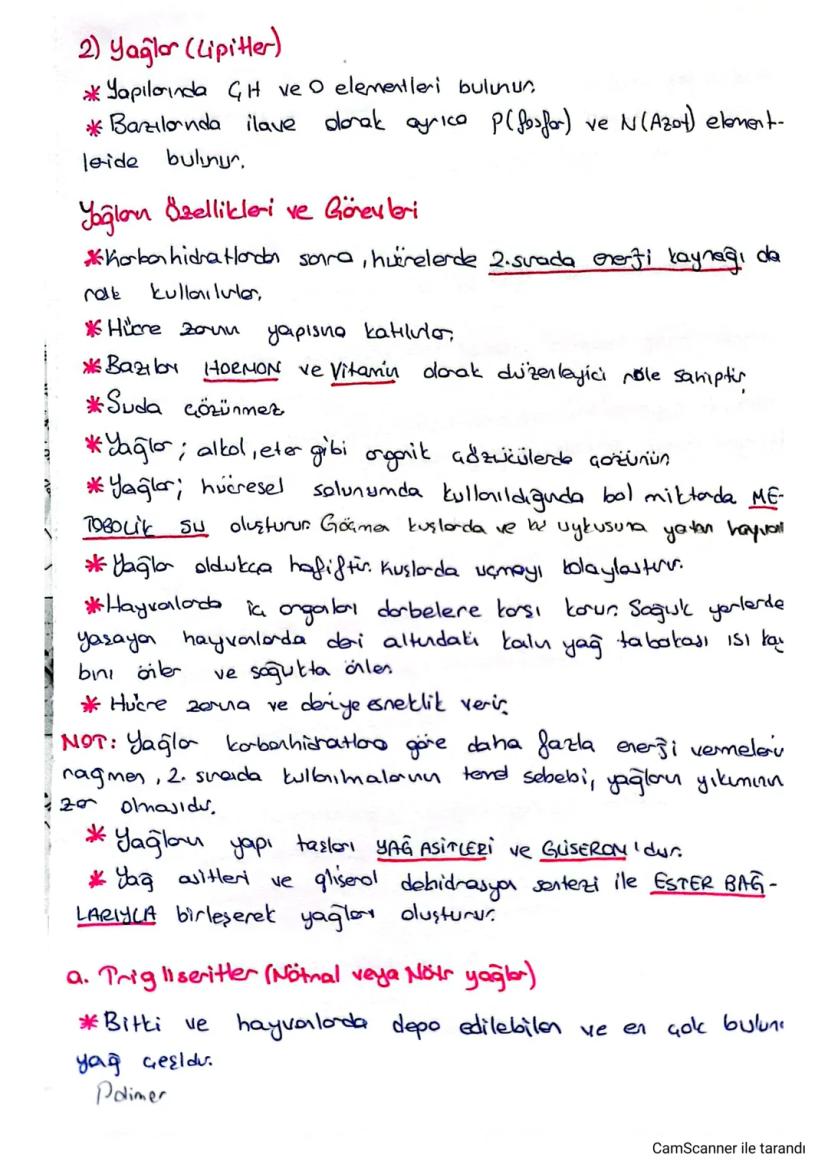 2) Yağlar (Lipitler)
* Yapılarında C,H ve O elementleri bulunur.
* Bazılarında ilave olarak ayrıca P(fosfor) ve N(Azot) element-
leride bulunur.
Yağların Özellikleri ve Görevleri
* Karbonhidratlardan sonra, hücrelerde 2.sırada enerji kaynağı ola
rak kullanılırlar.
* Hücre zarının yapısına katılırlar.
* Bazıları HORMON ve Vitamin olarak düzenleyici role sahiptir
* Suda çözünmez
* Yağlar; alkol, eter gibi organik çözücülerde çözünür.
* Yağlar; hücresel solunumda kullanıldığında bol miktarda ME-
TOBOLİK SU oluşturur. Göçmen kuşlarda ve kış uykusuna yatan hayvan
* Yağlar oldukça hafiftir. Kuşlarda uçmayı kolaylaştırır.
* Hayvanlarda iç organları darbelere karşı korur. Soğuk yerlerde
yaşayan hayvanlarda deri altındaki kalın yağ tabakası ısı kay
bını önler ve soğukta önler.
* Hücre zarına ve deriye esneklik verir.
NOT: Yağlar karbonhidratlara göre daha fazla enerji vermeleri
rağmen, 2. sırada kullanılmalarının temel sebebi, yağların yıkımının
zor olmasıdır.
* Yağların yapı taşları YAĞ ASİTLERİ ve GLİSERON'dur.
* Yağ asitleri ve gliserol dehidrasyon sentezi ile ESTER BAĞ-
LARIYLA birleşerek yağları oluşturur.
a. Trigliseritler (Nötral veya Nötr yağlar)
* Bitki ve hayvanlarda depo edilebilen ve en çok bulun
yağ çeşidir.
Polimer
CamScanner ile tarandı